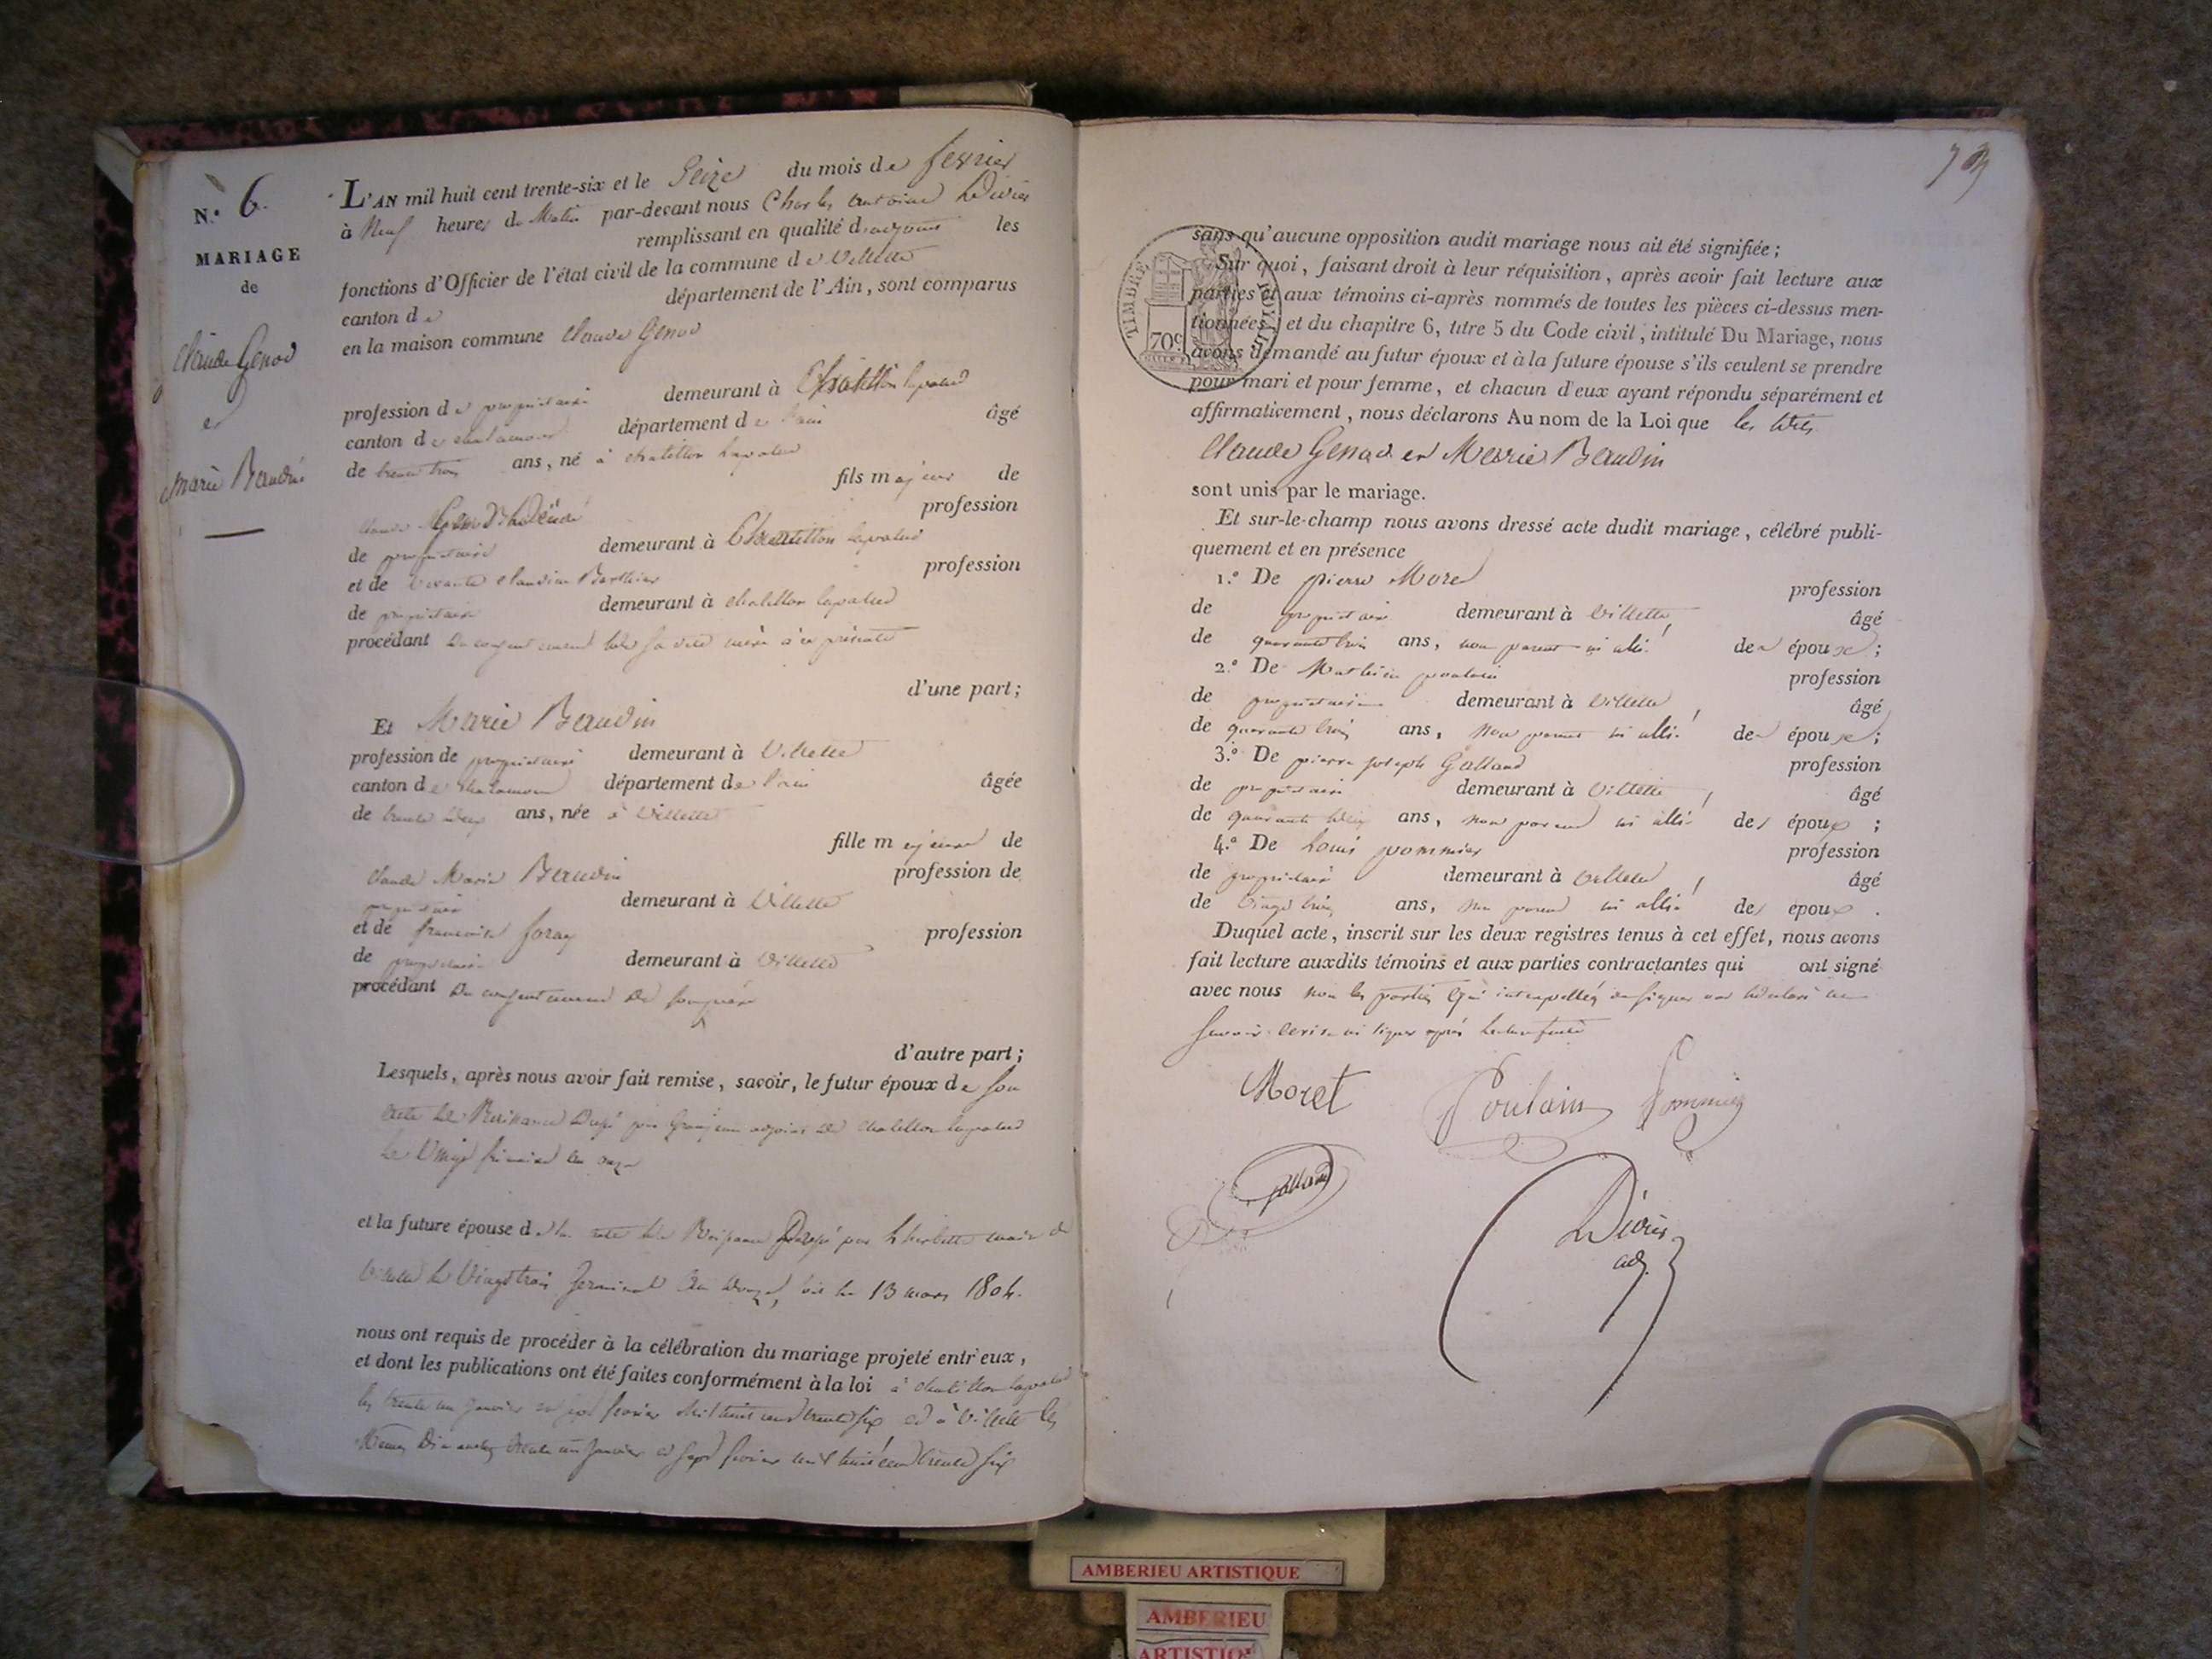 N.º 6.
MARIAGE
de
Claude Genod
et
Marie Baudin
L'AN mil huit cent trente-six et le Seize du mois de fevrier
à Neuf heures du Matin par-devant nous Charles antoine
remplissant en qualité d'adjoint les
fonctions d'Officier de l'état civil de la commune de Villette
canton de département de l'Ain, sont comparus
en la maison commune Claude Genod
profession de propriétaire demeurant à Chatillon lapalud
canton de chalamont département de l'ain âgé
de trente trois ans, né à chatillon lapalud
fils majeur de
profession
de propriétaire demeurant à Chatillon lapalud
et de vivante Claudine Berthier profession
de propriétaire demeurant à chatillon lapalud
procédant du consentement de sa dite mère à ce présente
d'une part;
Et Marie Baudin
profession de propriétaire demeurant à Villette
canton de chalamont département de l'ain âgée
de trente deux ans, née à Villette
fille majeure de
Claude Marie Baudin profession de
propriétaire demeurant à Villette
et de francoise foray profession
de propriétaire demeurant à Villette
procédant du consentement de son père
d'autre part;
Lesquels, après nous avoir fait remise, savoir, le futur époux de son
acte de Naissance adjoint de chatillon lapalud
le Vingt frimaire an onze
et la future épouse de son acte de Naissance par maire de
Villette le Vingt trois Germinal an douze, soit le 13 mars 1804.
nous ont requis de procéder à la célébration du mariage projeté entr'eux,
et dont les publications ont été faites conformément à la loi à chatillon lapalud
les trente un janvier et sept fevrier mil huit cent trente six et à Villette les
Mêmes Dimanches trente un janvier et sept fevrier mil huit cent trente six
sans qu'aucune opposition audit mariage nous ait été signifiée;
Sur quoi, faisant droit à leur réquisition, après avoir fait lecture aux
parties et aux témoins ci-après nommés de toutes les pièces ci-dessus men-
tionnées, et du chapitre 6, titre 5 du Code civil, intitulé Du Mariage, nous
avons demandé au futur époux et à la future épouse s'ils veulent se prendre
pour mari et pour femme, et chacun d'eux ayant répondu séparément et
affirmativement, nous déclarons Au nom de la Loi que les dits
Claude Genod et Marie Baudin
sont unis par le mariage.
Et sur-le-champ nous avons dressé acte dudit mariage, célébré publi-
quement et en présence
1.º De pierre Moret profession
de propriétaire demeurant à Villette, âgé
de quarante trois ans, non parent ni allié des époux;
2.º De Mathieu poulain profession
de propriétaire demeurant à Villette, âgé
de quarante trois ans, non parent ni allié des époux;
3.º De pierre joseph Galland profession
de propriétaire demeurant à Villette, âgé
de quarante deux ans, non parent ni allié des époux;
4.º De Louis pommier profession
de propriétaire demeurant à Villette, âgé
de Vingt trois ans, non parent ni allié des époux.
Duquel acte, inscrit sur les deux registres tenus à cet effet, nous avons
fait lecture auxdits témoins et aux parties contractantes qui ont signé
avec nous non les parties qui interpellés de signer ont déclaré ne
savoir écrire ni signer après lecture faite
Moret Poulain Pommier
galland
adj.
TIMBRE ROYAL
70 c.
AMBERIEU ARTISTIQUE
AMBERIEU
ARTISTIQ